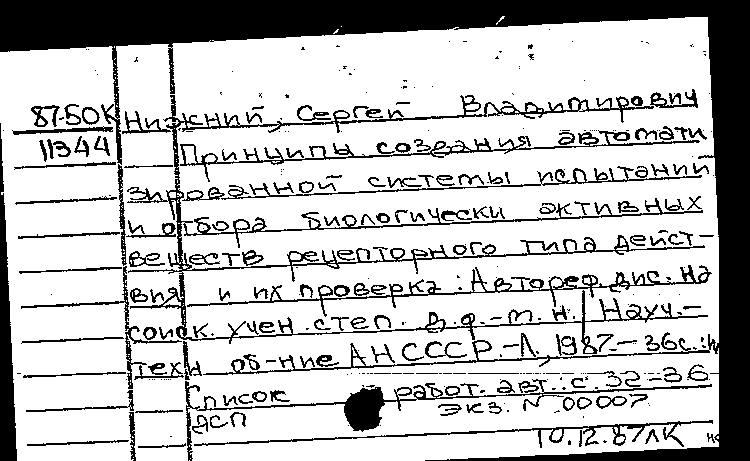 87-50К Нижний, Сергей Владимирович
11344 Принципы создания автомати
зированной системы испытаний
и отбора биологически активных
веществ рецепторного типа дейст-
вия и их проверка: Автореф. дис. на
соиск. учен. степ. д.ф.-м.н. / Науч.-
техн об-ние АН СССР.-Л., 1987.-36с.:
Список работ. авт.: с. 32-36
ДСП экз. N 00007
10.12.87ЛК